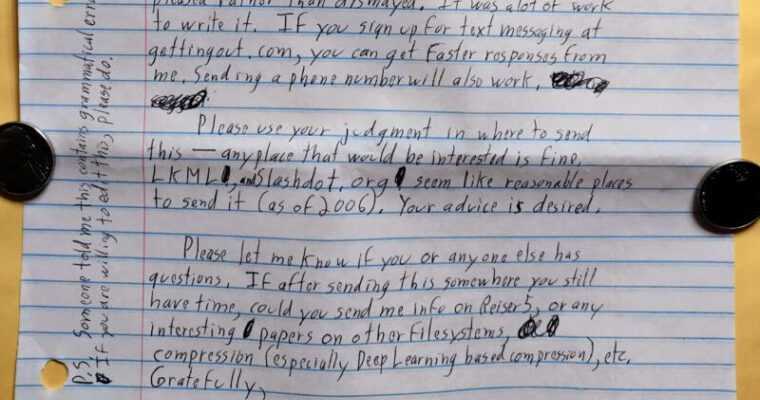 pleased rather than dismayed. It was a lot of work
to write it. If you sign up for text messaging at
gettingout.com, you can get faster responses from
me. Sending a phone number will also work.
Please use your judgment in where to send
this — any place that would be interested is fine.
LKML, and Slashdot.org seem like reasonable places
to send it (as of 2006). Your advice is desired.
Please let me know if you or anyone else has
questions. If after sending this somewhere you still
have time, could you send me info on Reiser5, or any
interesting papers on other filesystems,
compression (especially Deep Learning based compression), etc.
Gratefully,
P.S. Someone told me this contains grammatical
If you are willing to edit this, please do.